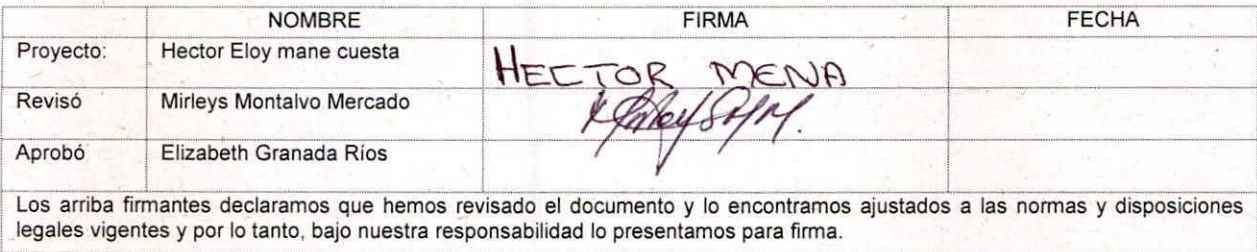 NOMBRE FIRMA FECHA
Proyecto: Hector Eloy mane cuesta HECTOR MENA
Revisó Mirleys Montalvo Mercado
Aprobó Elizabeth Granada Ríos
Los arriba firmantes declaramos que hemos revisado el documento y lo encontramos ajustados a las normas y disposiciones
legales vigentes y por lo tanto, bajo nuestra responsabilidad lo presentamos para firma.